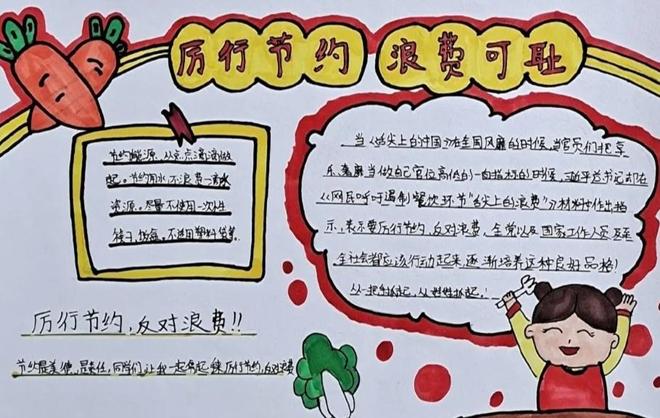 厉行节约 浪费可耻
节约能源、从点点滴滴做
起。节约用水不浪费一滴水
资源。尽量不使用一次性
筷子、饭盒。不适用塑料袋等
当《舌尖上的中国》在全国风靡的时候,当官员们把享
乐、奢靡当做自己官位高低的一向指标的时候,近平总书记却在
《网民呼吁遏制餐饮环节“舌尖上的浪费”》材料上作出指
示,表示要厉行节约,反对浪费,全党以及国家工作人员乃至
全社会都应该行动起来,逐渐培养这种良好品格!
从一把手抓起,从
厉行节约,反对浪费!!
节约最美德,同学们让我一起 厉行节约,反对浪费